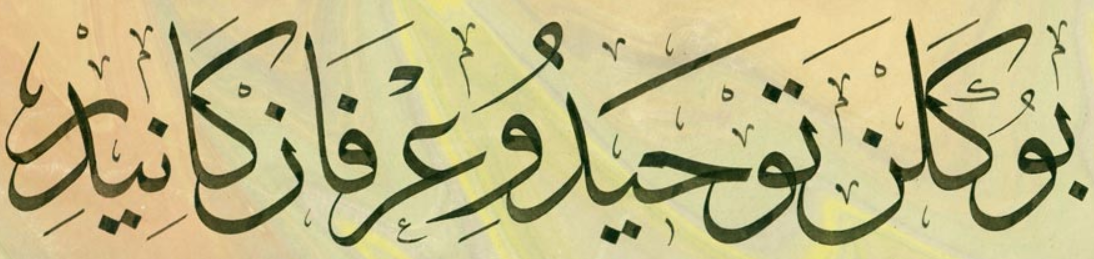 بُو كَلَنْ تَوْحِيد وُ عِرْفَانْ كَانِيدِرْ